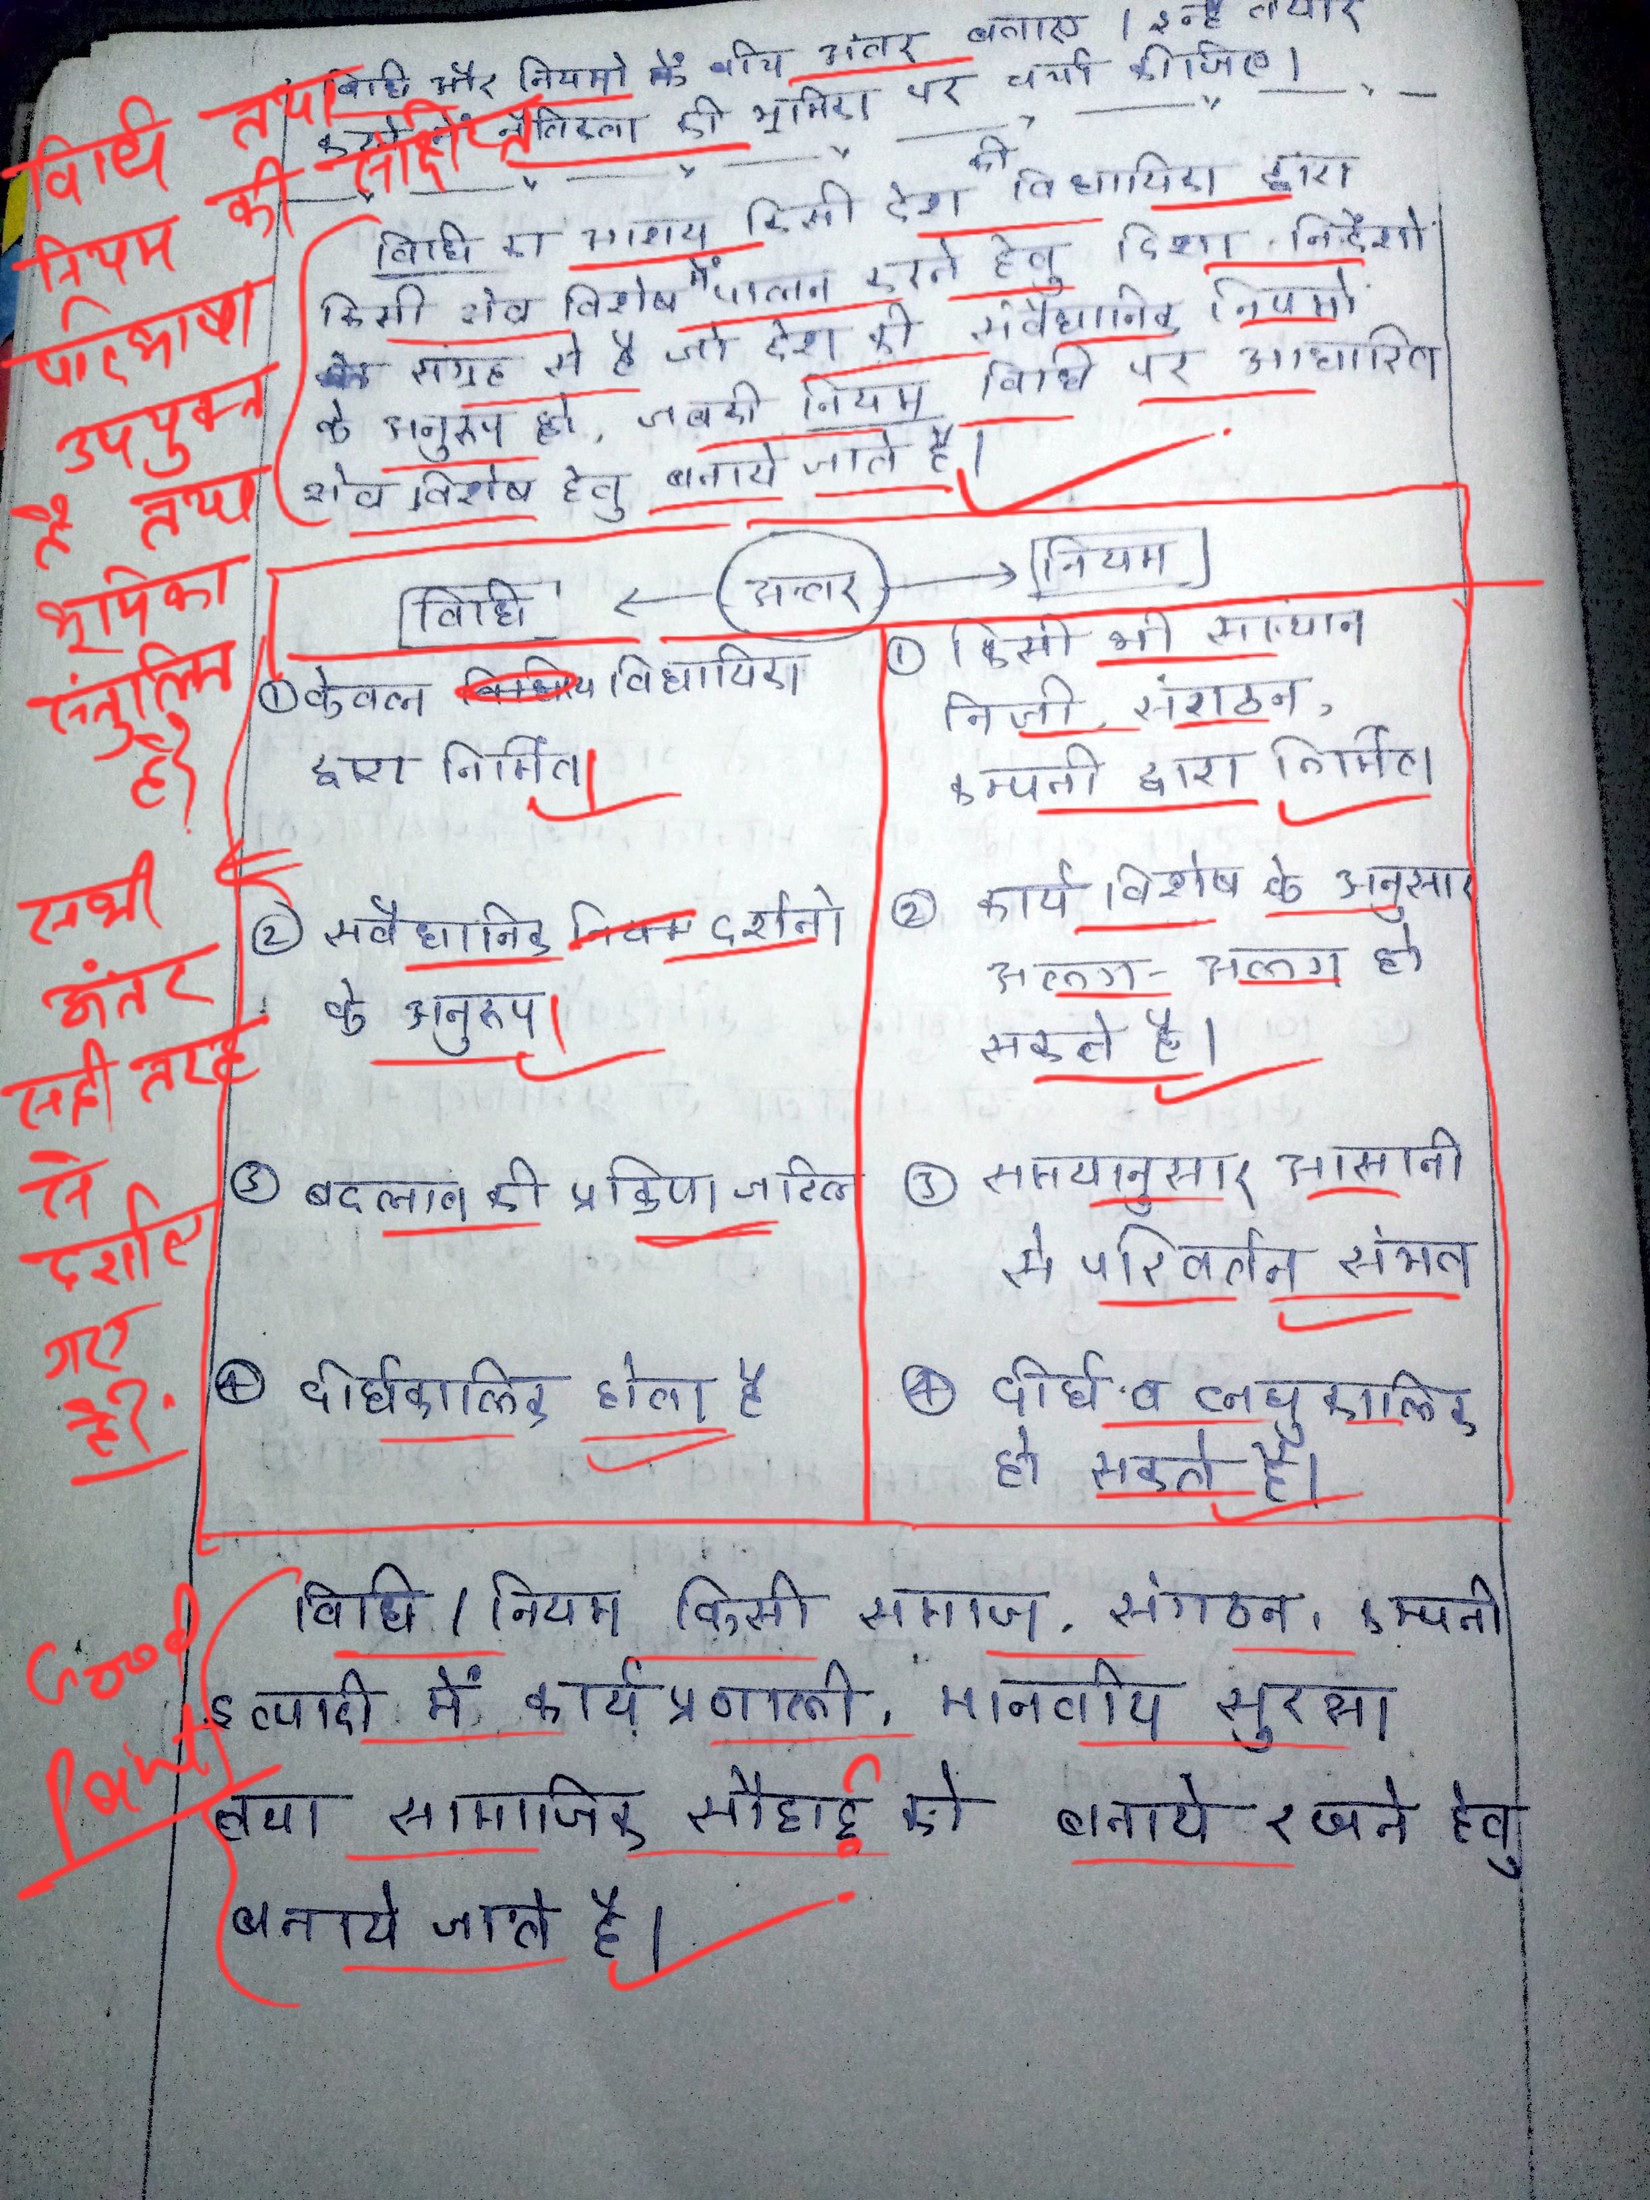 विधि और नियमो के बीच अंतर बताए। इन्हे तैयार
करने में नैतिकता की भूमिका पर चर्चा कीजिए।
विधि का आशय किसी देश की विधायिका द्वारा
किसी क्षेत्र विशेष में पालन करने हेतु दिशा निर्देशो
के संग्रह से है जो देश की संवैधानिक नियमो
के अनुरूप हो, जबकी नियम विधि पर आधारित
क्षेत्र विशेष हेतु बनाये जाते है।
विधि ← अन्तर → नियम
① केवल विधायिका
द्वारा निर्मित।
① किसी भी संस्थान
निजी, संगठन,
कम्पनी द्वारा निर्मित।
② सवैधानिक नियम दर्शनो
के अनुरूप।
② कार्य विशेष के अनुसार
अलग-अलग हो
सकते है।
③ बदलाव की प्रक्रिया जटिल
③ समयानुसार आसानी
से परिवर्तन संभव
④ दीर्घकालिक होता है
④ दीर्घ व लघु कालिक
हो सकते है।
विधि / नियम किसी समाज, संगठन, कम्पनी
इत्यादी में कार्य प्रणाली, मानवीय सुरक्षा
तथा सामाजिक सौहार्द्र को बनाये रखने हेतु
बनाये जाते है।
विधि तथा
नियम की संक्षिप्त
परिभाषा
उपयुक्त
है तथा
भूमिका
संतुलित
है।
सभी
अंतर
सही तरह
से
दर्शाए
गए
है।
Good
Point